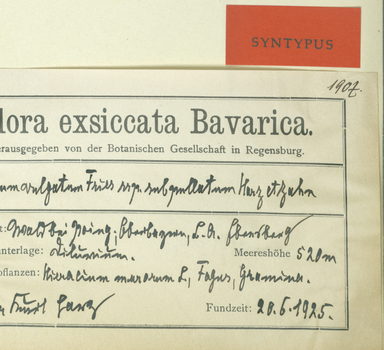 SYNTYPUS
1907.
lora exsiccata Bavarica.
erausgegeben von der Botanischen Gesellschaft in Regensburg.
um vulgatum Fries ssp. subpellatum Harz et Zahn
Wald bei Poing, Oberbayern, L. A. Ebersberg
nterlage: Diluvium. Meereshöhe 520 m
pflanzen: Hieracium murorum L, Fagus, Gramina.
Kurt Harz Fundzeit: 20.6.1925.